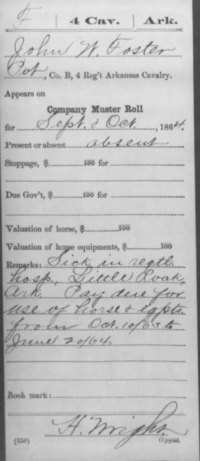 F 4 Cav. Ark.
John W. Foster
Pvt, Co. B, 4 Reg't Arkansas Cavalry.
Appears on
Company Muster Roll
for Sept & Oct, 1864.
Present or absent absent
Stoppage, $ 100 for
Due Gov't, $ 100 for
Valuation of horse, $ 100
Valuation of horse equipments, $ 100
Remarks: Sick in regtl
hosp, Little Rock,
Ark. Pay due for
use of horse & eqpts.
from Oct. 10/63 to
June 20/64.
Book mark:
H. Wright
(358) Copyist.